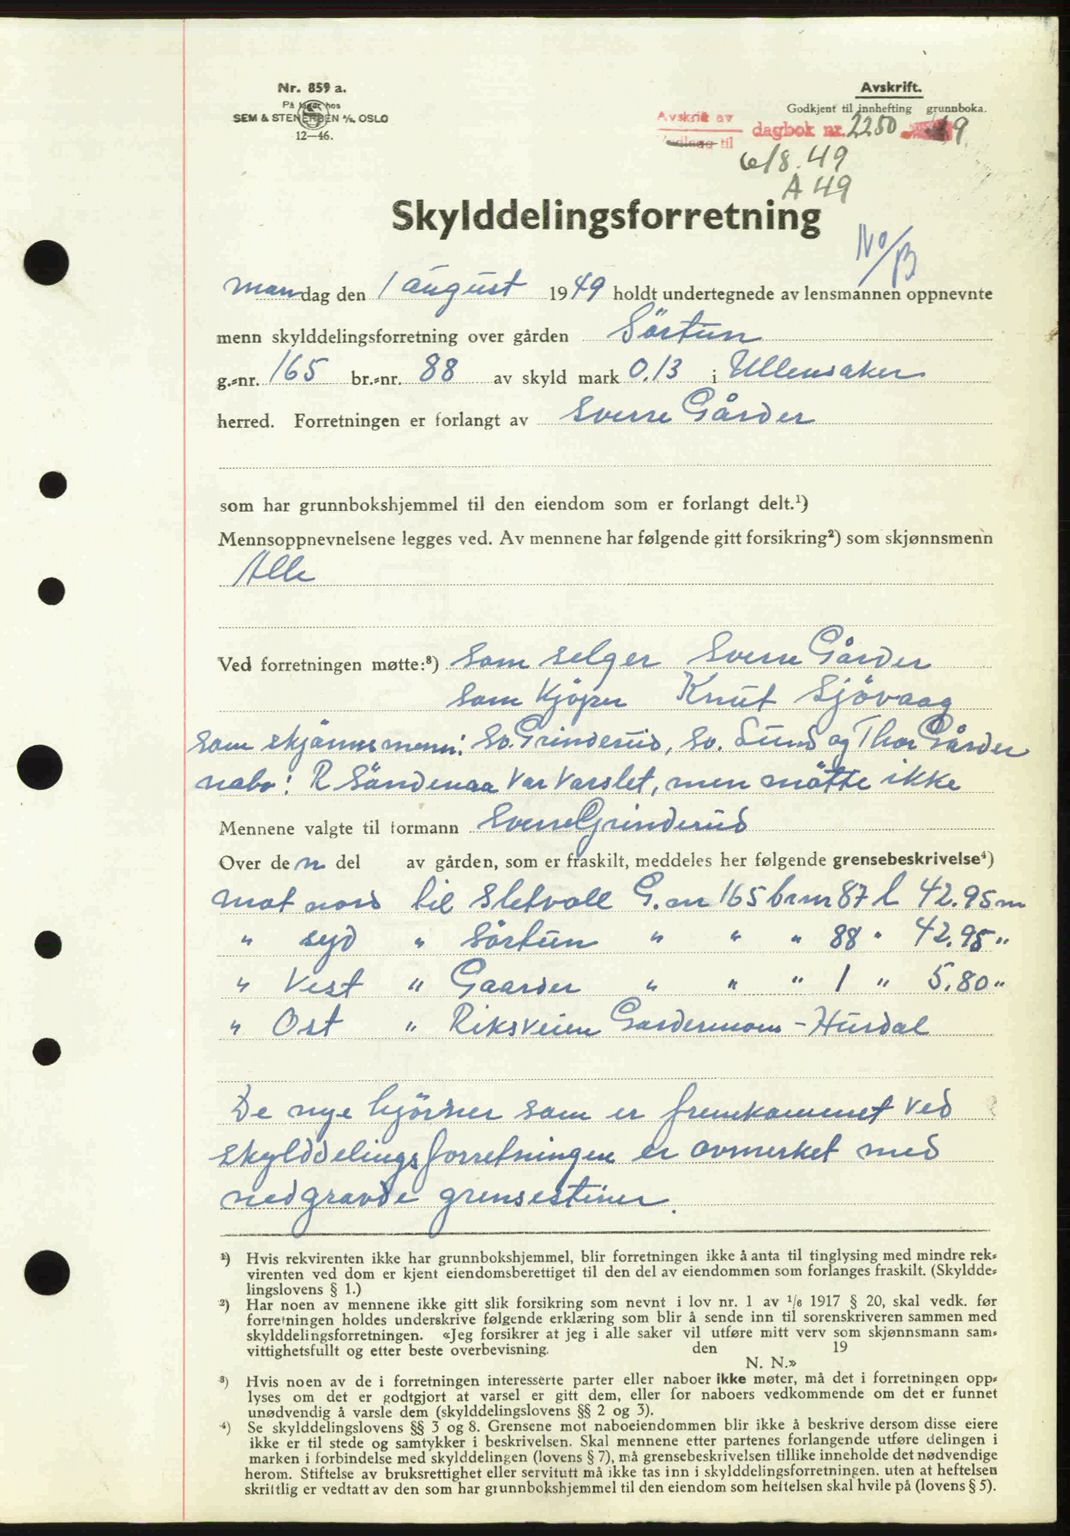 Nr. 859 a.
På lager hos
SEM & STENERSEN A/S, OSLO
12—46.
Avskrift.
Godkjent til innhefting grunnboka.
Avskrift av
Vedlegg til
dagbok nr. 2250 19
6/8.49
A 49
No/B
Skylddelingsforretning
mandag den 1 august 1949 holdt undertegnede av lensmannen oppnevnte
menn skylddelingsforretning over gården Sörtun
g.-nr. 165 br.-nr. 88 av skyld mark 0.13 i Ullensaker
herred. Forretningen er forlangt av Sverre Gårder
som har grunnbokshjemmel til den eiendom som er forlangt delt.¹)
Mennsoppnevnelsene legges ved. Av mennene har følgende gitt forsikring²) som skjønnsmenn
Alle
Ved forretningen møtte:³) Som selger Sverre Gårder
Som Kjöper Knut Sjövaag
Som skjönnsmenn: Sv. Grinderud, Sv. Lund og Thor Gårder
nabo: R Sändenaa Var Varslet, men mötte ikke
Mennene valgte til formann Sverre Grinderud
Over den del av gården, som er fraskilt, meddeles her følgende grensebeskrivelse⁴)
mot nord til Sletvoll G.nr 165 br nr 87 l 42.95 m
" syd " Sörtun " " " 88 " 42.95 "
" Vest " Gaarder " " " 1 " 5.80 "
" Ost " Riksveien Gardermoen - Hurdal
De nye hjörner som er fremkommet ved
skylddelingsforretningen er avmerket med
nedgravde grensestiner.
¹) Hvis rekvirenten ikke har grunnbokshjemmel, blir forretningen ikke å anta til tinglysing med mindre rek-
virenten ved dom er kjent eiendomsberettiget til den del av eiendommen som forlanges fraskilt. (Skyldde-
lingslovens § 1.)
²) Har noen av mennene ikke gitt slik forsikring som nevnt i lov nr. 1 av 1/6 1917 § 20, skal vedk. før
forretningen holdes underskrive følgende erklæring som blir å sende inn til sorenskriveren sammen med
skylddelingsforretningen. «Jeg forsikrer at jeg i alle saker vil utføre mitt verv som skjønnsmann sam-
vittighetsfullt og etter beste overbevisning. den 19
N. N.»
³) Hvis noen av de i forretningen interesserte parter eller naboer ikke møter, må det i forretningen opp-
lyses om det er godtgjort at varsel er gitt dem, eller for naboers vedkommende om det er funnet
unødvendig å varsle dem (skylddelingslovens §§ 2 og 3).
⁴) Se skylddelingslovens §§ 3 og 8. Grensene mot naboeiendommen blir ikke å beskrive dersom disse eiere
ikke er til stede og samtykker i beskrivelsen. Skal mennene etter partenes forlangende utføre delingen i
marken i forbindelse med skylddelingen (lovens § 7), må grensebeskrivelsen tillike inneholde det nødvendige
herom. Stiftelse av bruksrettighet eller servitutt må ikke tas inn i skylddelingsforretningen, uten at heftelsen
skriftlig er vedtatt av den som har grunnbokshjemmel til den eiendom som heftelsen skal hvile på (lovens § 5).